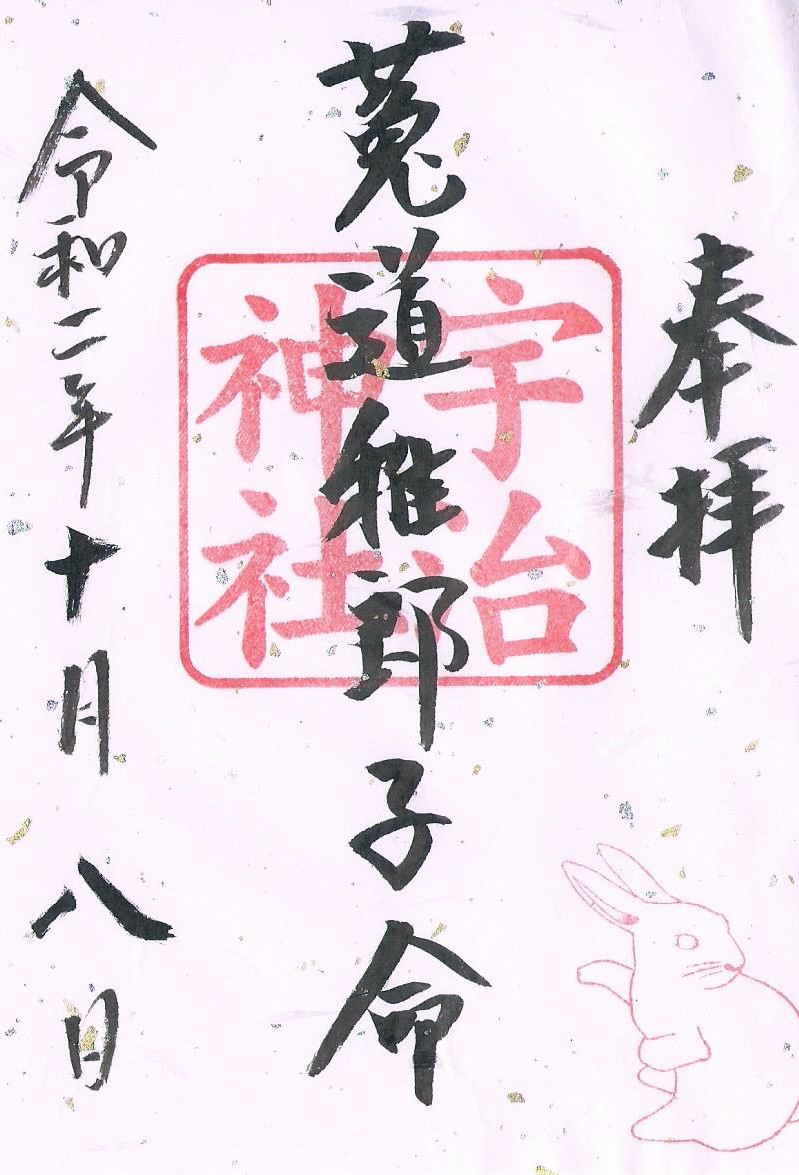 奉拝
菟道稚郎子命
宇治
神社
令和二年十月八日